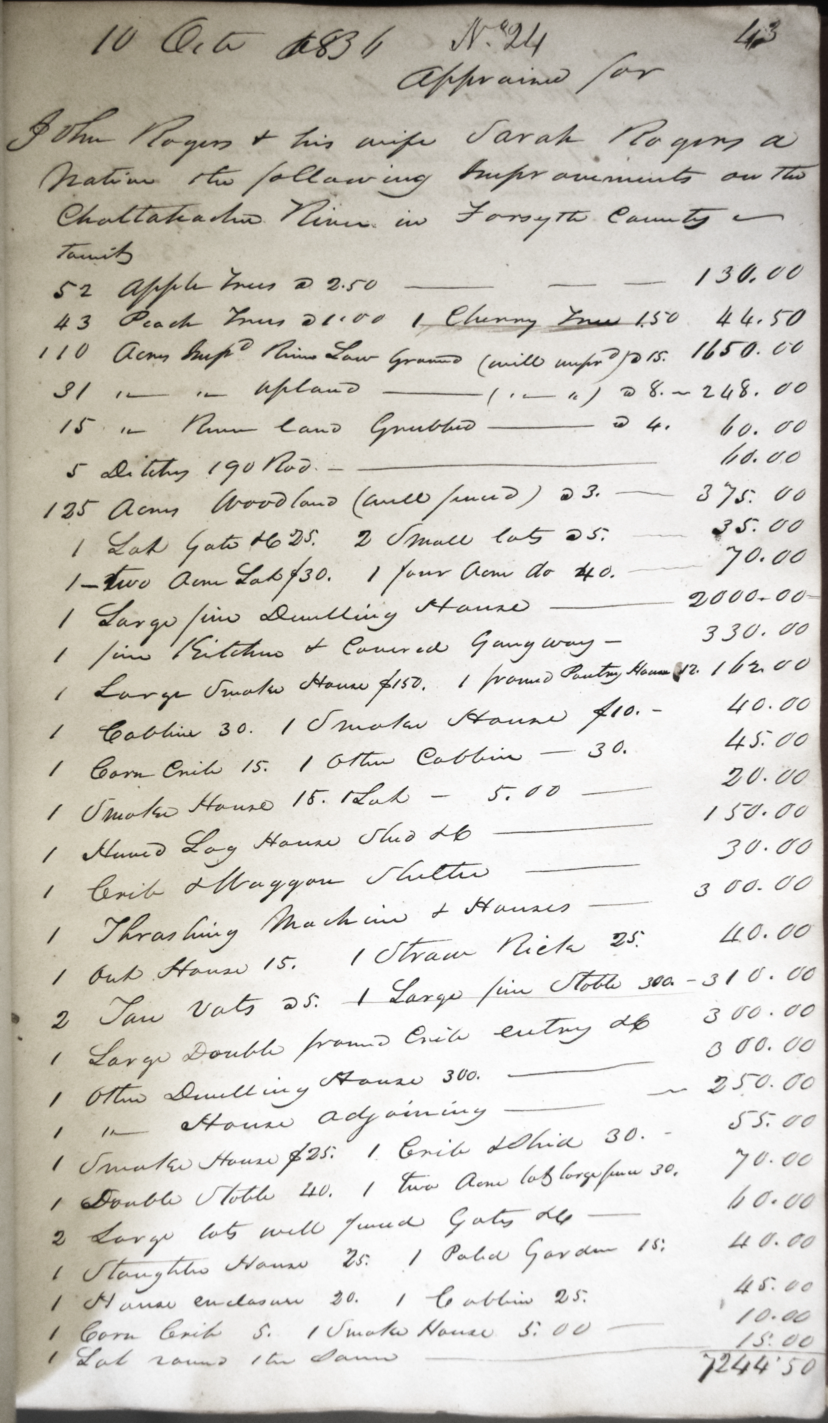 10 Octr 1836 No. 24 43
Appraised for
John Rogers & his wife Sarah Rogers a
Native the following Improvements on the
Chattahochu River in Forsyth County
towit
52 Apple Trees @ 2.50 — — — 130.00
43 Peach Trees @ 1.00 1 Cherry Tree 1.50 44.50
110 Acres Impd River Low Ground (well impd) @ 15. 1650.00
31 " " Upland — (" ") @ 8. — 248.00
15 " River land Grubbed — @ 4. 60.00
5 Ditches 190 Rod — 60.00
125 Acres Woodland (well fenced) @ 3. — 375.00
1 Lot Gate &c 25. 2 Small lots @ 5. 35.00
1 two Acre Lot $30. 1 four Acre do 40. — 70.00
1 Large fine Dwelling House — 2000.00
1 fine Kitchen & Covered Gangway — 330.00
1 Large Smoke House $150. 1 framed Poultry House 12. 162.00
1 Cabbin 30. 1 Smoke House $10. — 40.00
1 Corn Crib 15. 1 Other Cabbin — 30. 45.00
1 Smoke House 15. 1 Lot — 5.00 — 20.00
1 Hewed Log House Shed &c — 150.00
1 Crib & Waggon Shelter — 30.00
1 Thrashing Machine & Houses — 300.00
1 Out House 15. 1 Straw Rick 25. 40.00
2 Tan Vats @ 5. 1 Large fine Stable 300. — 310.00
1 Large Double framed Crib entry &c 300.00
1 Other Dwelling House 300. — 300.00
1 " House adjoining — 250.00
1 Smoke House $25. 1 Crib & Shed 30. — 55.00
1 Double Stable 40. 1 two Acre lot large fence 30. 70.00
2 Large lots well fenced Gates &c — 60.00
1 Slaughter House 25. 1 Paled Garden 15. 40.00
1 House enclosure 20. 1 Cabbin 25. 45.00
1 Corn Crib 5. 1 Smoke House 5.00 — 10.00
1 Lot round the Same — 15.00
7244.50